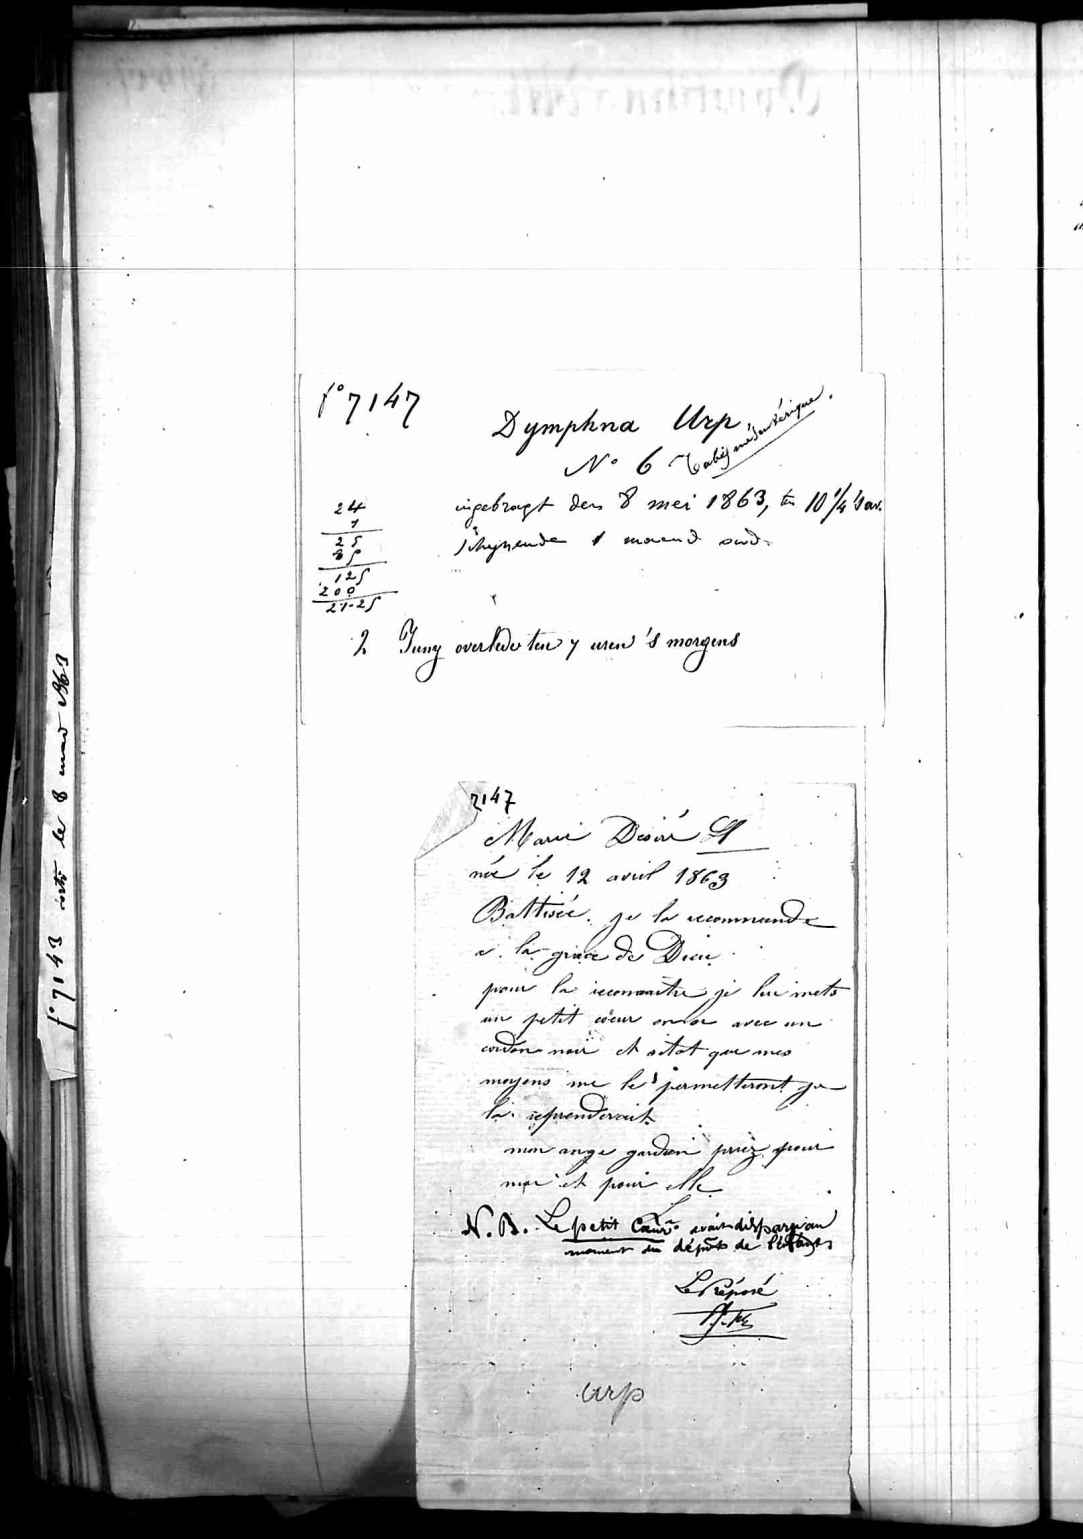 f° 7147
Dymphna Urp
N° 6 Tabes mésentérique.
ingebragt den 8 mei 1863, ten 10 1/4 's av.
schijnende 1 maand oud.
24
1
25
85
125
200
21-25
2 Juny overlede ten 7 uren 's morgens
f° 7143 le 8 1863
7147
Marie Désiré
née le 12 avril 1863
Battisée. je la recommende
a la grace de Dieu
pour la reconnaitre je lui mets
un petit cœur en or avec un
cordon noir et sitot que mes
moyens me les permetteront je
la reprenderait
mon ange gardien priez pour
moi et pour elle
N. B. Le petit Cœur avait disparu au
moment du dépôt de l'enfant
Le Préposé
urp